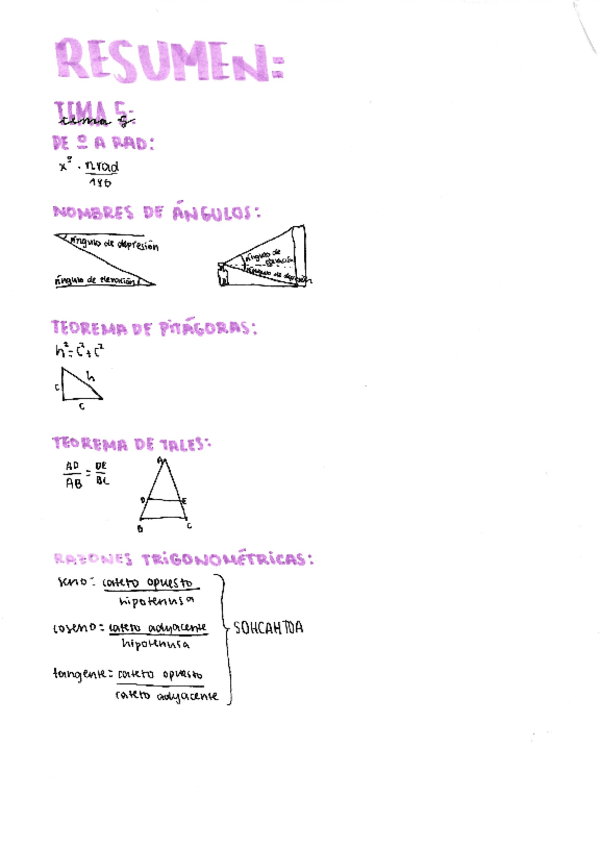 RESUMEN:
TEMA 5:
tema 5
DE º A RAD:
xº · πrad
180
NOMBRES DE ÁNGULOS:
ángulo de depresión
ángulo de elevación
ángulo de elevación
ángulo de depresión
TEOREMA DE PITÁGORAS:
h²=c²+c²
h
c
c
TEOREMA DE TALES:
AD = DE
AB BC
A
D E
B C
RAZONES TRIGONOMÉTRICAS:
seno = cateto opuesto
hipotenusa
coseno = cateto adyacente
hipotenusa
SOHCAHTOA
tangente = cateto opuesto
cateto adyacente